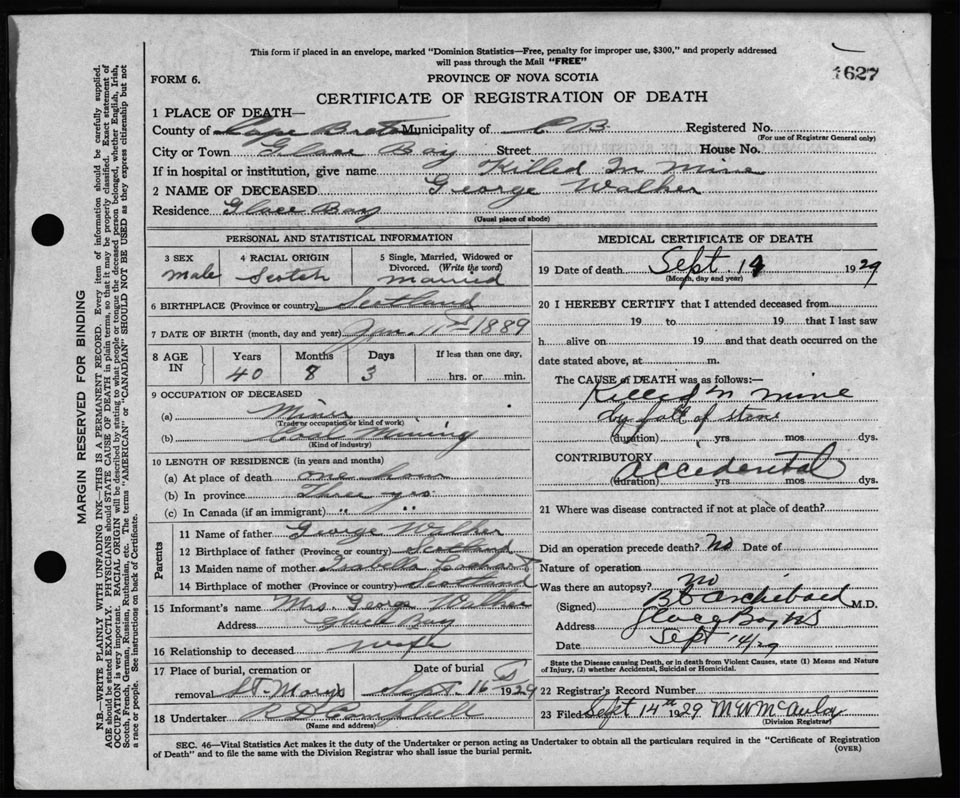 This form if placed in an envelope, marked "Dominion Statistics—Free, penalty for improper use, $300," and properly addressed
will pass through the Mail "FREE"
1627
FORM 6.
PROVINCE OF NOVA SCOTIA
CERTIFICATE OF REGISTRATION OF DEATH
1 PLACE OF DEATH—
County of Cape Breton Municipality of C B Registered No.
(For use of Registrar General only)
City or Town Glace Bay Street House No.
If in hospital or institution, give name Killed In Mine
2 NAME OF DECEASED George Walker
Residence Glace Bay
(Usual place of abode)
PERSONAL AND STATISTICAL INFORMATION
3 SEX 4 RACIAL ORIGIN 5 Single, Married, Widowed or
Divorced. (Write the word)
Male Scotch Married
6 BIRTHPLACE (Province or country) Scotland
7 DATE OF BIRTH (month, day and year) Jan. 11th 1889
8 AGE IN Years Months Days If less than one day,
40 8 3 hrs. or min.
9 OCCUPATION OF DECEASED
(a) Miner
(Trade or occupation or kind of work)
(b) Coal Mining
(Kind of industry)
10 LENGTH OF RESIDENCE (in years and months)
(a) At place of death one hour
(b) In province Three yrs
(c) In Canada (if an immigrant) " "
Parents
11 Name of father George Walker
12 Birthplace of father (Province or country) Scotland
13 Maiden name of mother Isabella Lockhart
14 Birthplace of mother (Province or country) Scotland
15 Informant's name Mrs. George Walker
Address Glace Bay
16 Relationship to deceased wife
17 Place of burial, cremation or Date of burial
removal St. Marys Sept. 16 1929
18 Undertaker Campbell
(Name and address)
MEDICAL CERTIFICATE OF DEATH
19 Date of death Sept 14 1929
(Month, day and year)
20 I HEREBY CERTIFY that I attended deceased from
19 to 19 that I last saw
h alive on 19 and that death occurred on the
date stated above, at m.
The CAUSE of DEATH was as follows:—
Killed in mine
by fall of stone
(duration) yrs mos dys.
CONTRIBUTORY
accidental
(duration) yrs mos dys.
21 Where was disease contracted if not at place of death?
Did an operation precede death? No Date of
Nature of operation
Was there an autopsy? no
(Signed) Archibald M.D.
Address Glace Bay NS
Date Sept 14/29
State the Disease causing Death, or in death from Violent Causes, state (1) Means and Nature
of Injury, (2) whether Accidental, Suicidal or Homicidal.
22 Registrar's Record Number
23 Filed Sept 14th 1929 McAulay
(Division Registrar)
SEC. 46—Vital Statistics Act makes it the duty of the Undertaker or person acting as Undertaker to obtain all the particulars required in the "Certificate of Registration
of Death" and to file the same with the Division Registrar who shall issue the burial permit.
(OVER)
MARGIN RESERVED FOR BINDING
N.B.—WRITE PLAINLY WITH UNFADING INK—THIS IS A PERMANENT RECORD. Every item of information should be carefully supplied.
AGE should be stated EXACTLY. PHYSICIANS should STATE CAUSE OF DEATH in plain terms, so that it may be properly classified. Exact statement of
OCCUPATION is very important. RACIAL ORIGIN will be described by stating to what people or tongue the deceased person belonged, whether English, Irish,
Scotch, French, German, Russian, Ruthenian, etc. The terms "AMERICAN" or "CANADIAN" SHOULD NOT BE USED as they express citizenship but not
a race or people. See instructions on back of Certificate.